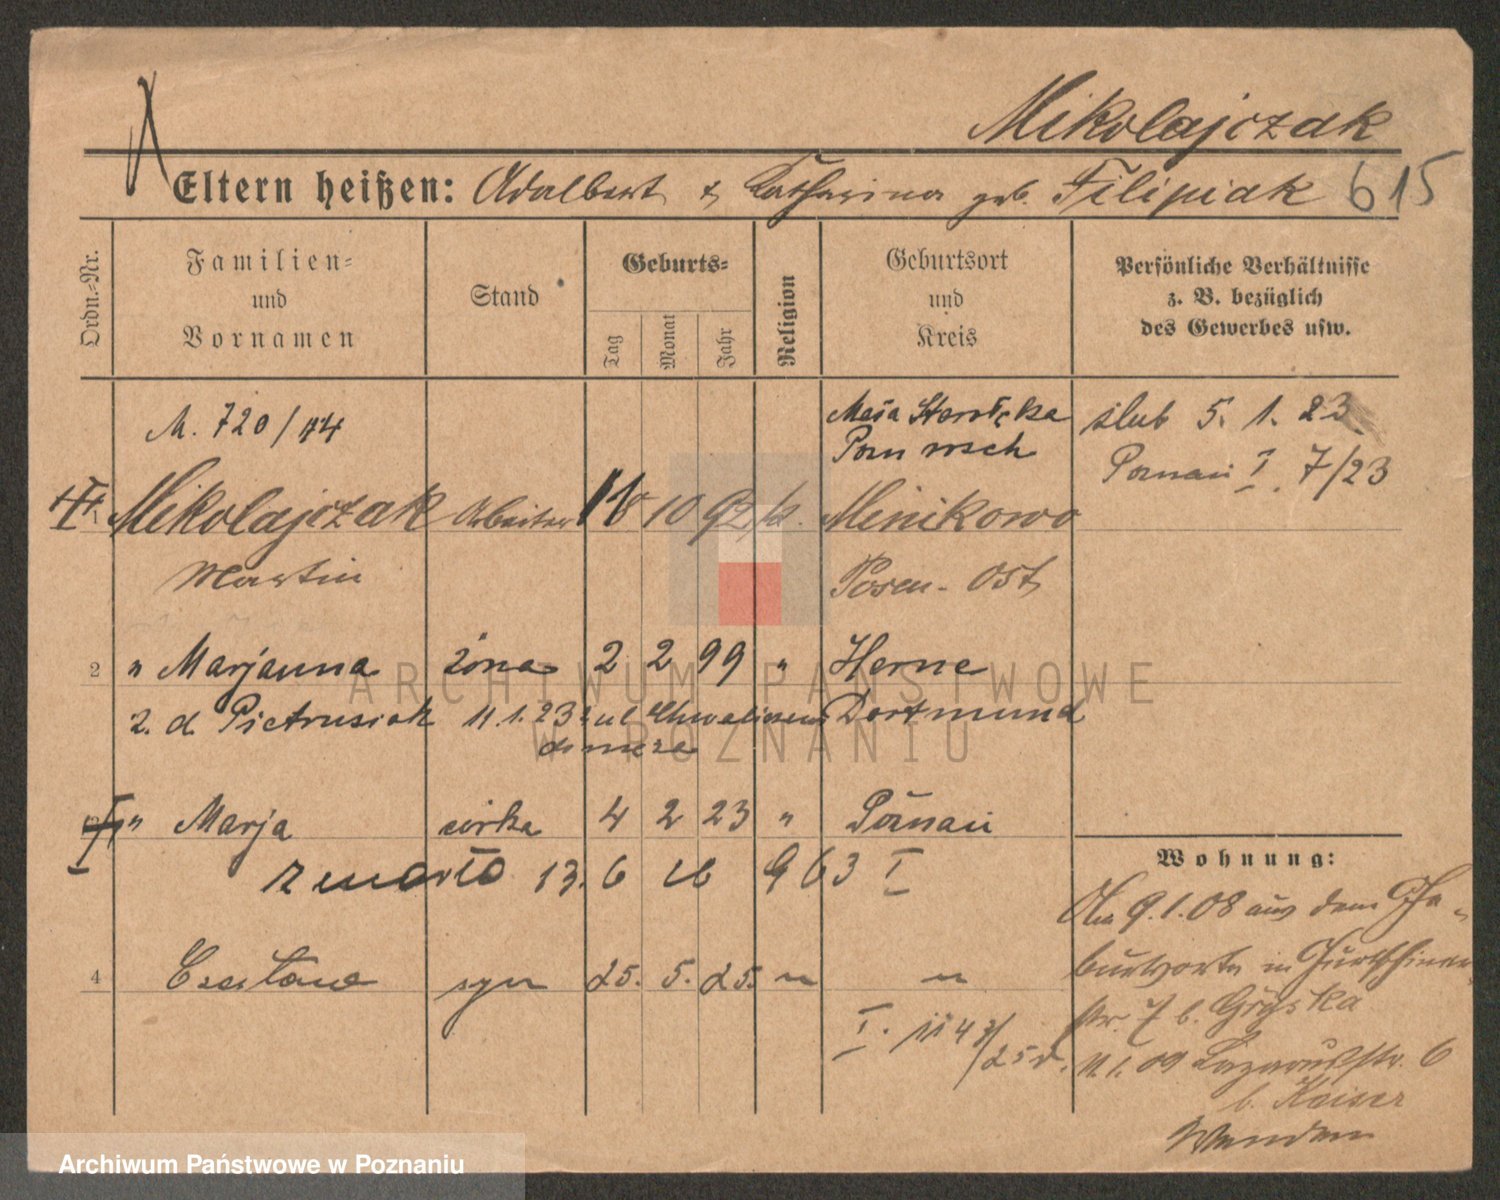 Mikolajczak
Eltern heißen: Adalbert & Katharina geb. Filipiak 615
Ordn.-Nr.
Familien-
und
Vornamen
Stand
Geburts-
Tag
Monat
Jahr
Religion
Geburtsort
und
Kreis
Persönliche Verhältnisse
z. B. bezüglich
des Gewerbes usw.
M. 720/
Starołęka
ślub 5. 1. 23
Poznań I. 7/23
1 Mikolajczak Arbeiter 10 92 k. Minikowo
Martin Posen-Ost
2 " Marjanna żona 2 2 99 " Herne
z. d. Pietrusiak 11.1.23 ul Dortmund
" Marja córka 4 2 23 " Poznań
zmarła 13. 6 963 I
4 Czesław syn 25. 5. 25. " "
I.
Wohnung:
9.1.08 aus dem Ge-
burtsorte in
str. 7 b.
11.1.09 Lazarusstr. 6
b. Kaiser
ARCHIWUM PAŃSTWOWE
W POZNANIU
Archiwum Państwowe w Poznaniu